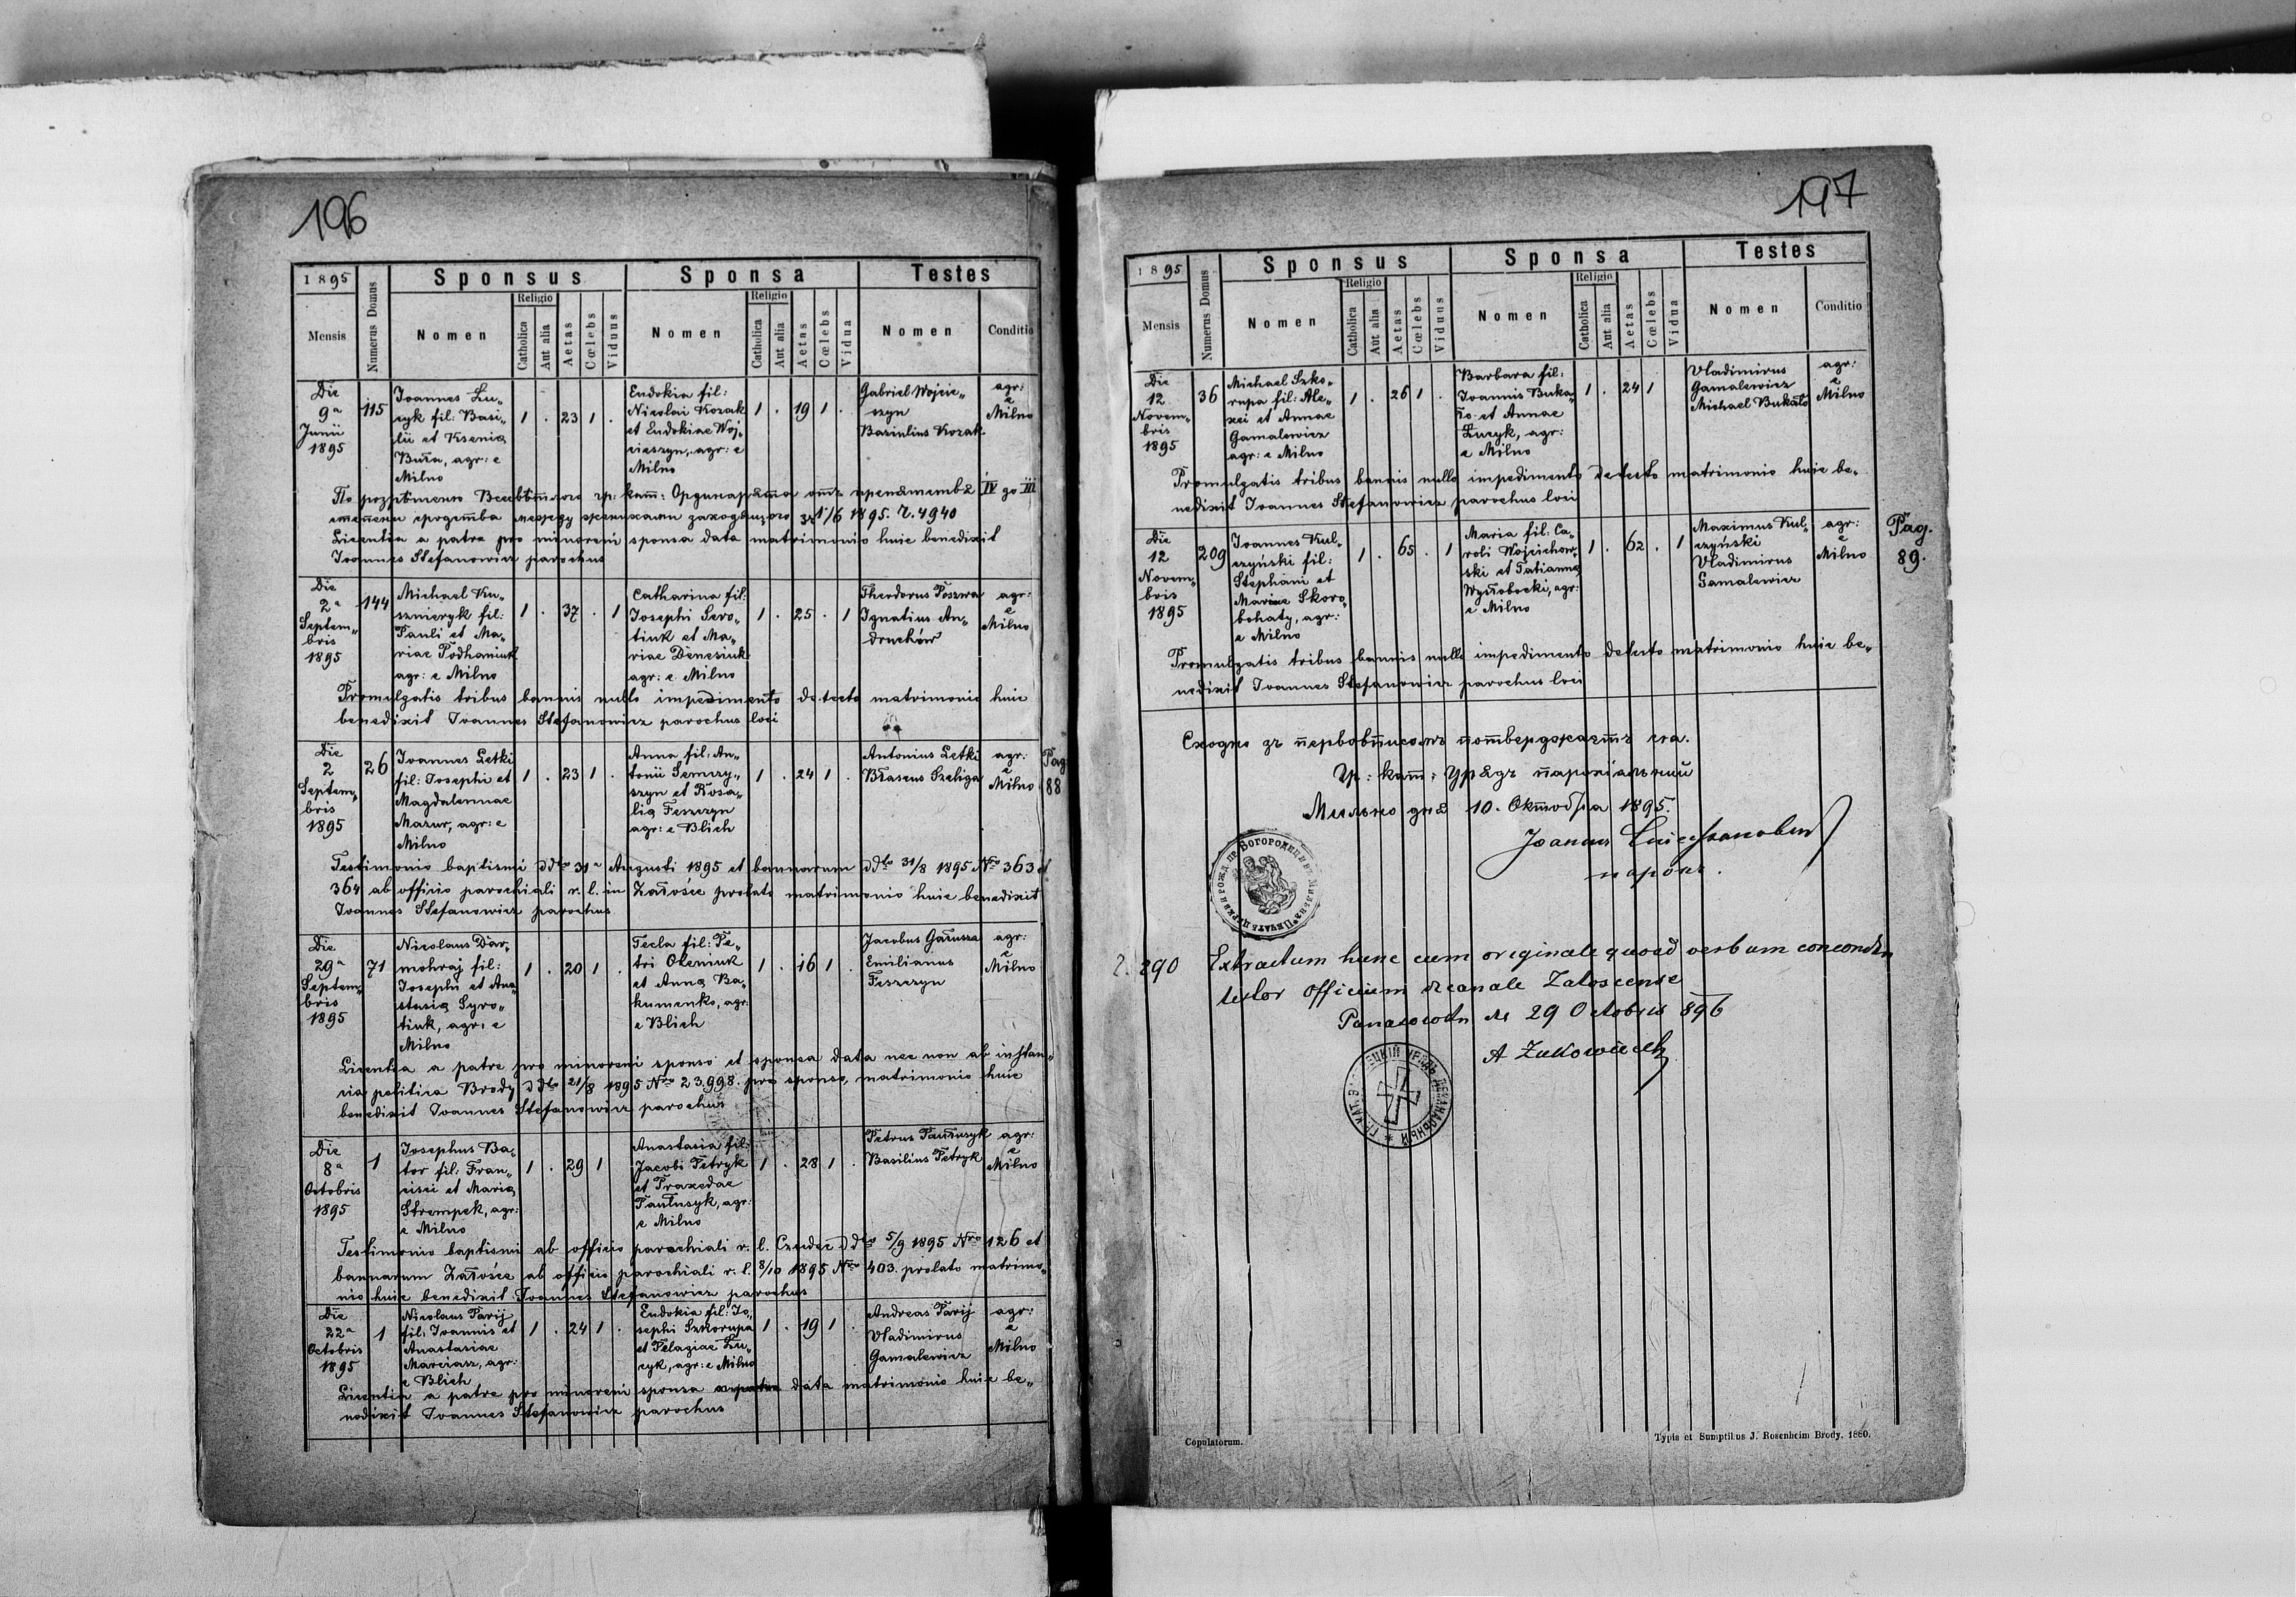 196
1895
Mensis
Numerus Domus
Sponsus
Nomen
Religio
Catholica
Aut alia
Aetas
Cœlebs
Viduus
Sponsa
Nomen
Religio
Catholica
Aut alia
Aetas
Cœlebs
Vidua
Testes
Nomen
Conditio
Die
9ª
Junii
1895
115
Joannes Łu„
cyk fil: Basi„
lii et Ksenią
Buła, agr: e
Milno
1 . 23 1 .
Eudokia fil:
Nicolai Kozak
et Eudokiae Woj„
cieszyn, agr: e
Milno
1 . 19 1 .
Gabriel Wojcie„
szyn
Basiulius Kozak
agr:
e
Milno
IV до III
1/6 1895. Ч. 4940
Licentia a patre pro minoreni sponsa data matrimonio huic benedixit
Joannes Stefanowicz parochus
Die
2ª
Septem„
bris
1895
144
Michael Ku„
sznieryk fil:
Pauli et Ma„
riae Podhaniuk
agr: e Milno
1 . 37 . 1
Catharina fil:
Josephi Sero„
tiuk et Ma„
riae Denesiuk
agr: e Milno
1 . 25 . 1
Theodorus Poszwa
Ignatius An„
druchów
agr:
e
Milno
Promulgatis tribus bannis nullo impedimento detecto matrimonio huic
benedixit Joannes Stefanowicz parochus loci
Die
2
Septem„
bris
1895
26
Joannes Letki
fil: Josephi et
Magdalennae
Mazur, agr: e
Milno
1 . 23 1 .
Anna fil: An„
tonii Semczy„
szyn et Rosa„
lią Feszczyn
agr: e Blich
1 . 24 1 .
Antonius Letki
Błaseus Szeliga
agr:
e
Milno
Pag
88
Testimonio baptismi ddto 31ª Augusti 1895 et bannorum ddto 31/8 1895 Nro 363 et
364 ab officio parochiali r. l. in Załośce prolato matrimonio huic benedixit
Joannes Stefanowicz parochus
Die
29ª
Septem„
bris
1895
71
Nicolaus Dar„
mohraj fil:
Josephi et Ana„
stasią Syro„
tiuk, agr: e
Milno
1 . 20 1 .
Tecla fil: Pe„
tri Oleniuk
et Anną Ba„
kumenko, agr:
e Blich
1 . 16 1 .
Jacobus Gałusza
Emilianus
Feszczyn
agr:
e
Milno
Licentia a patre pro minoreni sponso et sponsa data nec non ab instan„
cia politica Brody ddto 21/8 1895 Nro 23.998. pro sponso, matrimonio huic
benedixit Joannes Stefanowicz parochus
Die
8ª
Octobris
1895
1
Josephus Ba„
tor fil: Fran„
cisci et Marią
Strempek, agr:
e Milno
1 . 29 1
Anastasia fil:
Jacobi Petryk
et Praxedae
Pawłusyk, agr:
e Milno
1 . 28 1 .
Petrus Pawłusyk
Basilius Petryk
agr:
e
Milno
Testimonio baptismi ab officio parochiali r. l. Czudec ddto 5/9 1895 Nro 126 et
bannorum Załośce ab officio parochiali r. l. 8/10 1895 Nro 403. prolato matrimo„
nio huic benedixit Joannes Stefanowicz parochus
Die
22ª
Octobris
1895
1
Nicolaus Parij
fil: Joannis et
Anastasiae
Marciasz, agr:
e Blich
1 . 24 1 .
Eudokia fil: Jo„
sephi Szkorupa
et Pelagiae Łu„
cyk, agr: e Milno
1 . 19 1 .
Andreas Parij
Vladimirus
Gamalewicz
agr:
e
Milno
Licentia a patre pro minoreni sponsa data matrimonio huic be„
nedixit Joannes Stefanowicz parochus
197
1895
Mensis
Numerus Domus
Sponsus
Nomen
Religio
Catholica
Aut alia
Aetas
Cœlebs
Viduus
Sponsa
Nomen
Religio
Catholica
Aut alia
Aetas
Cœlebs
Vidua
Testes
Nomen
Conditio
Die
12
Novem„
bris
1895
36
Michael Szko„
rupa fil: Ale„
xei et Annae
Gamalewicz
agr: e Milno
1 . 26 1 .
Barbara fil:
Joannis Buka„
ło et Annae
Łucyk, agr:
e Milno
1 . 24 1
Vladimirus
Gamalewicz
Michael Bukało
agr:
e
Milno
Promulgatis tribus bannis nullo impedimento detecto matrimonio huic be„
nedixit Joannes Stefanowicz parochus loci
Die
12
Novem„
bris
1895
209
Joannes Kul„
czyński fil:
Stephani et
Mariae Skoro„
bohaty, agr:
e Milno
1 . 65 . 1
Maria fil: Ca„
roli Wojcichow„
ski et Tatianną
Wysłobocki, agr:
e Milno
1 . 62 . 1
Maximus Kul„
czyński
Vladimirus
Gamalewicz
agr:
e
Milno
Pag.
89.
Promulgatis tribus bannis nullo impedimento detecto matrimonio huic be„
nedixit Joannes Stefanowicz parochus loci
Сходно зъ первовписомъ потверджаєтъ ся.
Гр: кат: Урядъ парохіальный
Мильно дня 10. Октобра 1895.
парохъ.
290
Extractum hunc cum originale quoad verbum concordu
testor Officium decanale Zaloscense
29 Octobris 896
Copulatorum.
Typis et Sumptibus J. Rosenheim Brody. 1880.